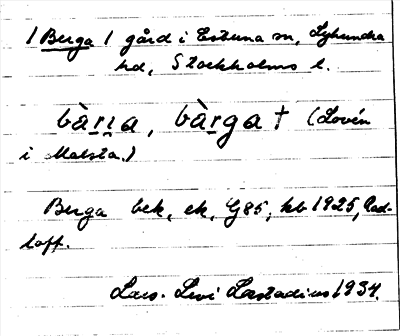 / Berga / gård i Estuna sn, Lyhundra
hd, Stockholms l.
bàr̲ı̲a, bàr̲ga † (Lovén
i Malsta.)
Berga bek, ek, G85, kb 1925, Rad-
loff.
Lars-Levi Læstadius 1934.